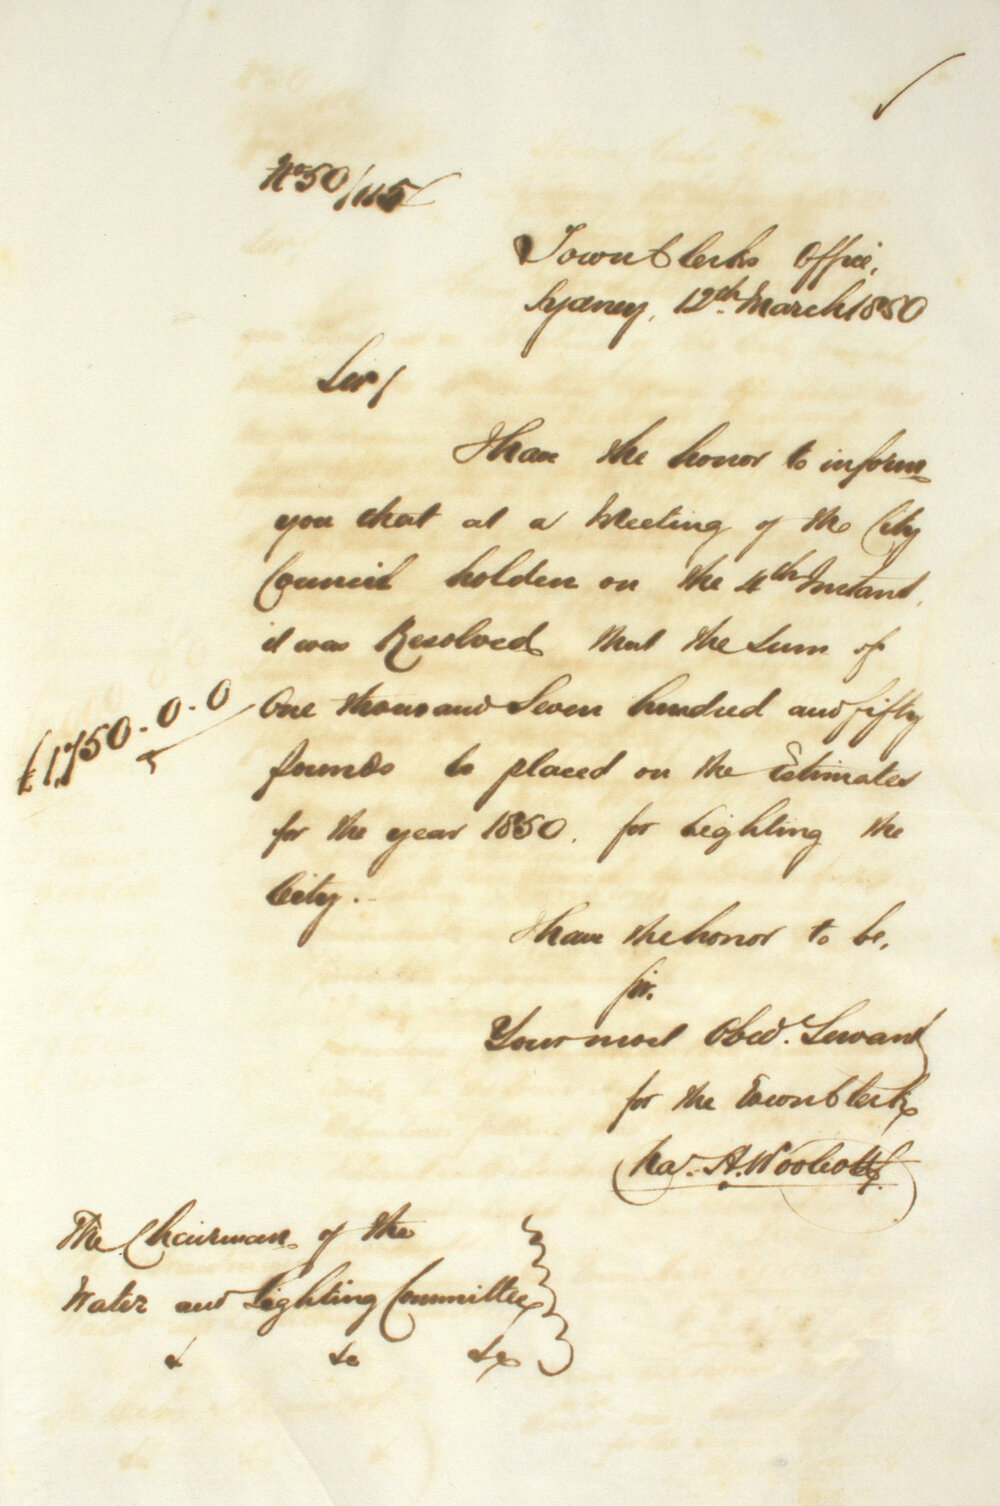 No 50/115
Town Clerks Office,
Sydney, 12th March 1850
Sir/
I have the honor to inform
you that at a Meeting of the City
Council holden on the 4th Instant,
it was Resolved that the Sum of
£1,750.0.0
One thousand Seven hundred and fifty
pounds be placed on the Estimates
for the year 1850, for Lighting the
City.
I have the honor to be,
Sir,
Your most Obed. Servant
for the Town Clerk
Chas. A. Woolcott
The Chairman of the
Water and Lighting Committee
& &c &c